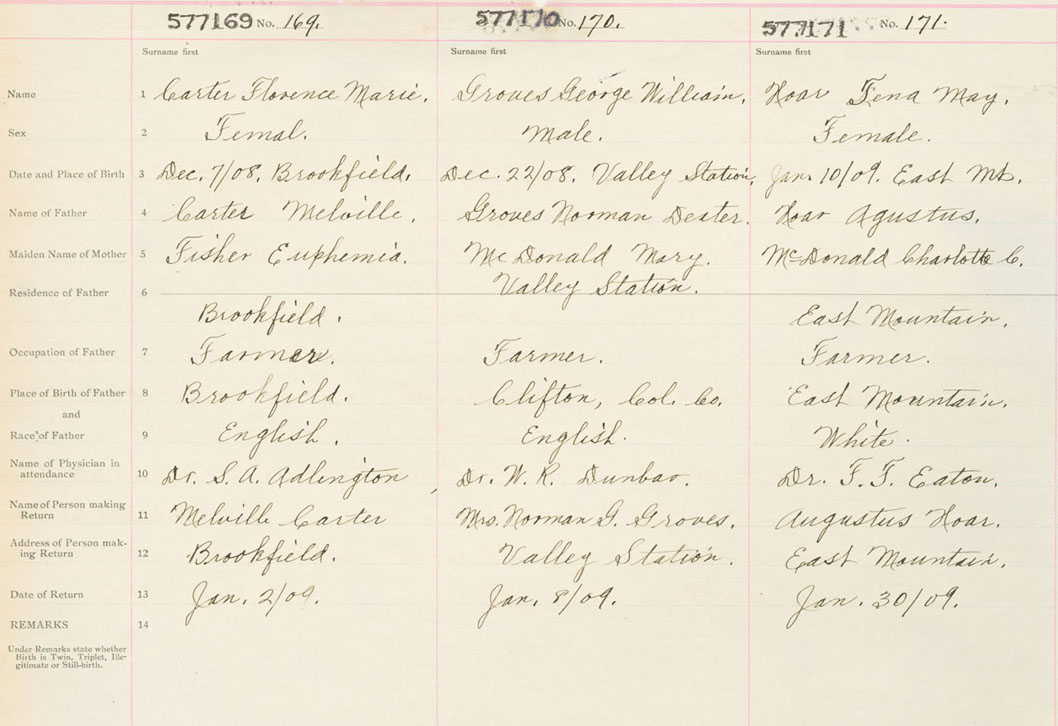 577169 No. 169. 577170 No. 170. 577171 No. 171.
Surname first Surname first Surname first
Name 1 Carter Florence Marie. Groves George William. Hoar Tena May.
Sex 2 Femal. Male. Female.
Date and Place of Birth 3 Dec. 7/08. Brookfield. Dec. 22/08. Valley Station. Jan. 10/09. East Mt.
Name of Father 4 Carter Melville. Groves Norman Dexter. Hoar Agustus.
Maiden Name of Mother 5 Fisher Euphemia. McDonald Mary. McDonald Charlotte C.
Residence of Father 6 Brookfield. Valley Station. East Mountain.
Occupation of Father 7 Farmer. Farmer. Farmer.
Place of Birth of Father 8 Brookfield. Clifton, Col. Co. East Mountain.
and
Race of Father 9 English. English. White.
Name of Physician in
attendance 10 Dr. S. A. Adlington Dr. W. R. Dunbar. Dr. F. F. Eaton.
Name of Person making
Return 11 Melville Carter Mrs. Norman G. Groves. Augustus Hoar.
Address of Person mak-
ing Return 12 Brookfield. Valley Station. East Mountain.
Date of Return 13 Jan. 2/09. Jan. 8/09. Jan. 30/09.
REMARKS 14
Under Remarks state whether
Birth is Twin, Triplet, Ille-
gitimate or Still-birth.